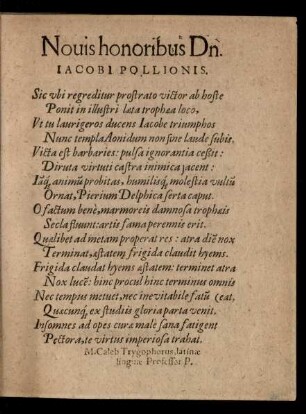 Nouis honoribus Dñ.
IACOBI POLLIONIS.
Sic vbi regreditur prostrato victor ab hoste
Ponit in illustri læta trophea loco,
Vt tu laurigeros ducens Iacobe triumphos
Nunc templa Aonidum non sine laude subis.
Victa est barbaries: pulsa ignorantia cessit:
Diruta virtuti castra inimica jacent:
animũ probitas, humilisq́; molestia vultũ
Ornat, Pierium Delphica serta caput.
O factum benè, marmoreis damnosa trophæis
Secla fluunt: artis fama perennis erit.
Qualibet ad metam properat res: atra diẽ nox
Terminat, æstatem frigida claudit hyems.
Frigida claudat hyems æstatem: terminet atra
Nox lucẽ: hinc procul hinc terminus omnis
Nec tempus metuet, nec inevitabile fatũ (eat,
Quæcunq́; ex studiis gloria parta venit.
Insomnes ad opes cura male sana fatigent
Pectora, te virtus imperiosa trahat.
M. Caleb Trygophorus, latinæ
linguæ Professor P.